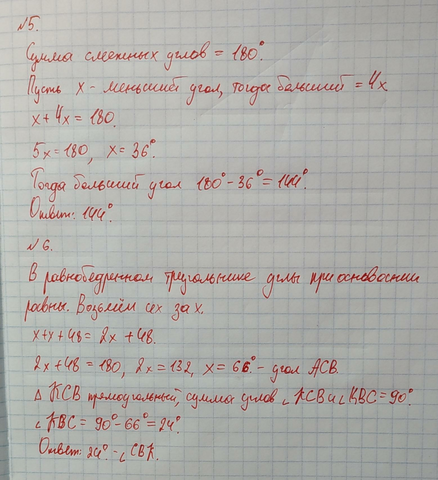 №5.
Сумма смежных углов = 180°.
Пусть x - меньший угол, тогда больший = 4x
x + 4x = 180.
5x = 180, x = 36°.
Тогда больший угол 180° - 36° = 144°.
Ответ: 144°.
№6.
В равнобедренном треугольнике углы при основании
равны. Возьмём их за x.
x+x+48 = 2x + 48.
2x+48 = 180, 2x = 132, x = 66° - угол ACB.
Δ KCB прямоугольный, сумма углов ∠KCB и ∠KBC = 90°.
∠KBC = 90° - 66° = 24°.
Ответ: 24° - ∠CBK.